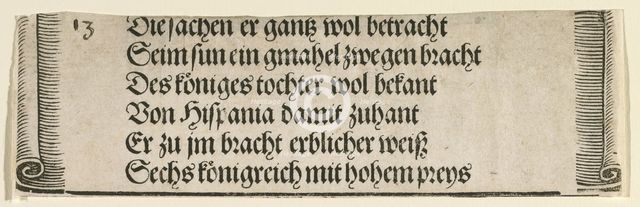 13
Die sachen er gantz wol betracht
Seim sun ein gmahel zwegen bracht
Des königes tochter wol bekant
Von Hispania damit zuhant
Er zu jm bracht erblicher weiß
Sechs königreich mit hohem preys